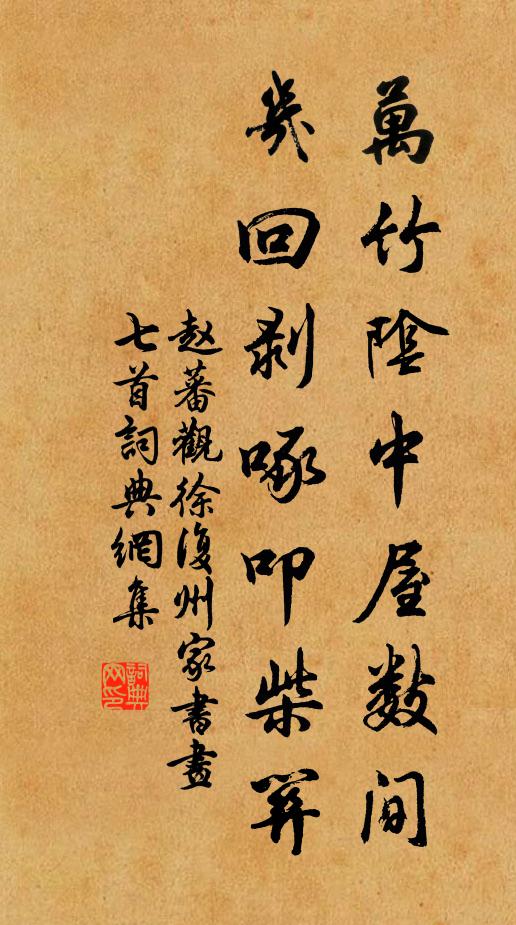 萬竹陰中屋數间
幾回剥啄叩柴關
赵蕃觀徐復州家書畫
七首詞典網集
詞典网印